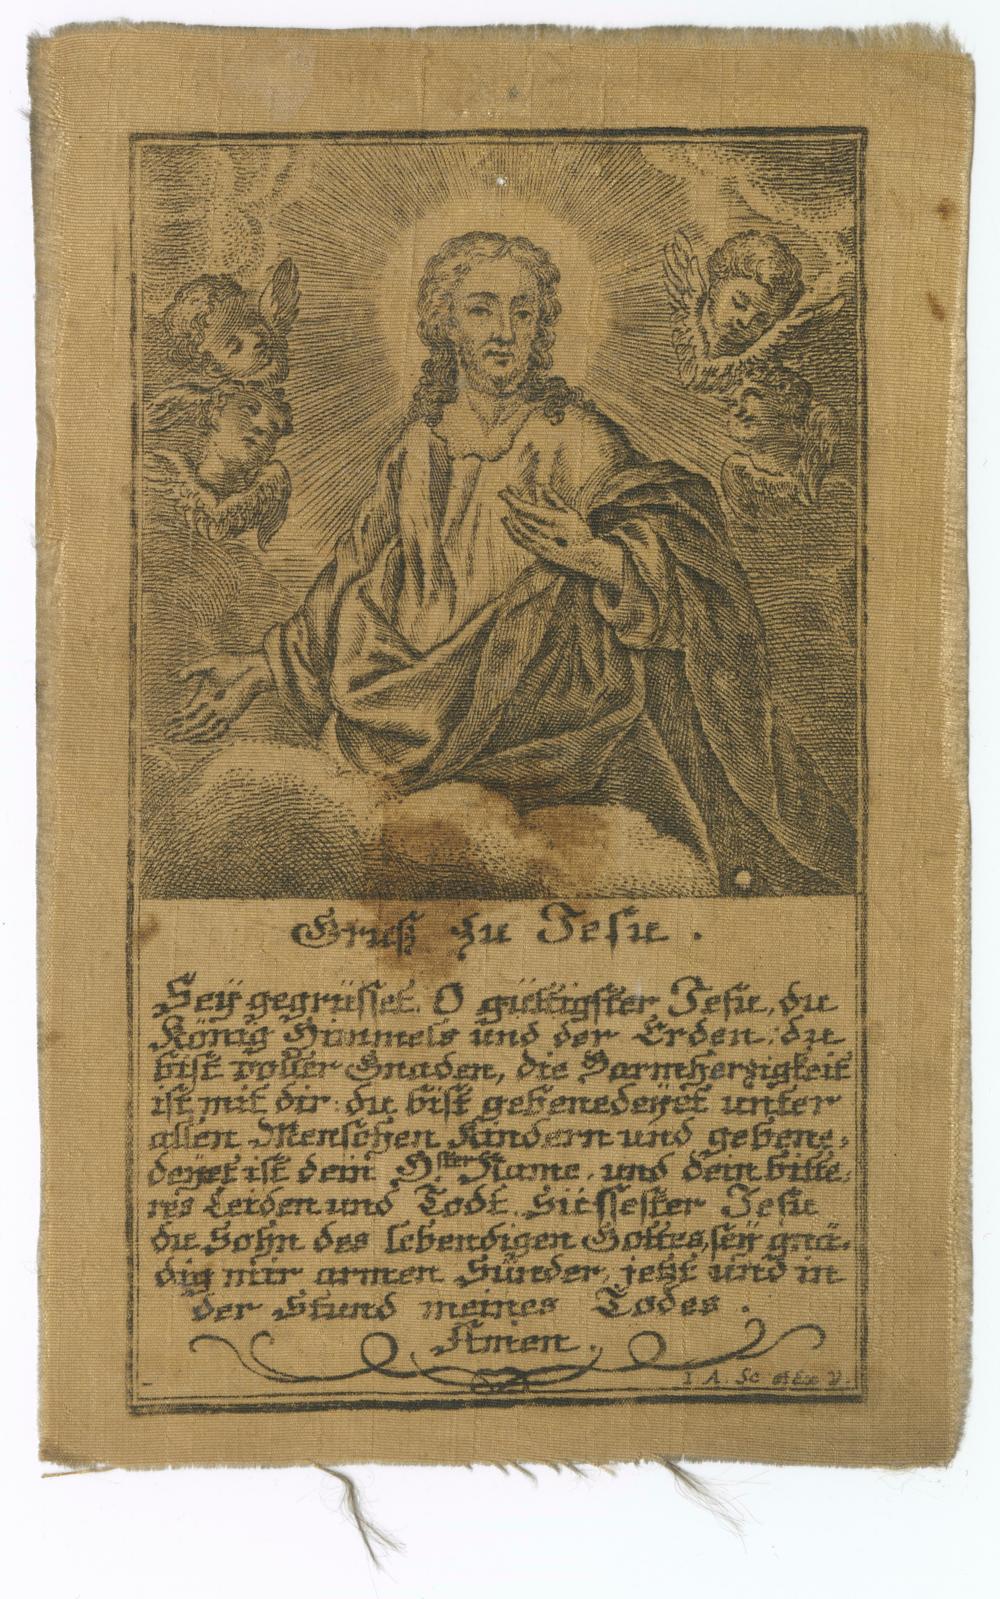 Gruß zu Jesu.
Seÿ gegrüsset, O gütigster Jesu, du
König Himmels und der Erden: du
bist voller Gnaden, die Barmherzigkeit
ist mit dir: du bist gebenedeÿet unter
allen Menschen Kindern und gebene,
deÿet ist dein H.ster Name, und dein bitte,
res Leiden und Todt. Süssester Jesu
du Sohn des lebendigen Gottes, seÿ gnä,
dig mir armen Sünder, jetzt und in
der Stund meines Todes.
Amen.
I. A. Sc et Exc V.